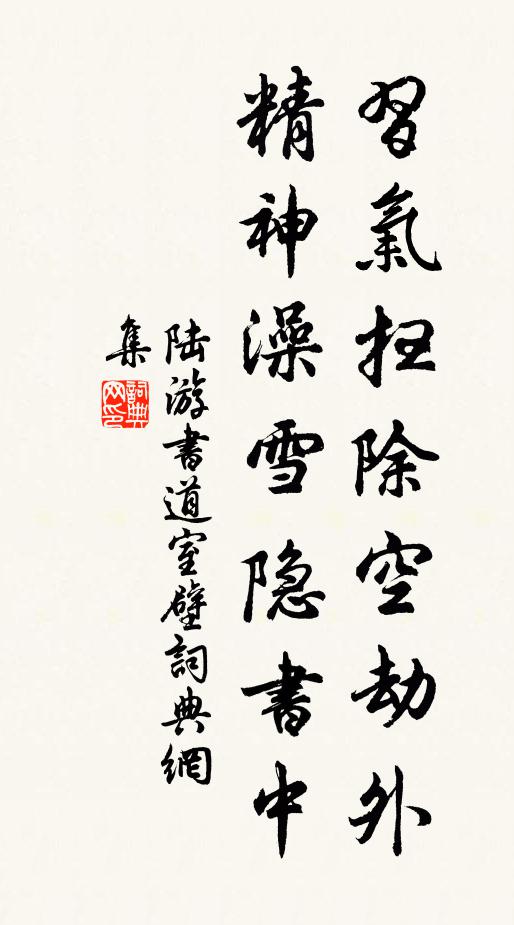 習氣扫除空劫外
精神澡雪隐書中
陆游書道室壁詞典網
集
詞典
网印